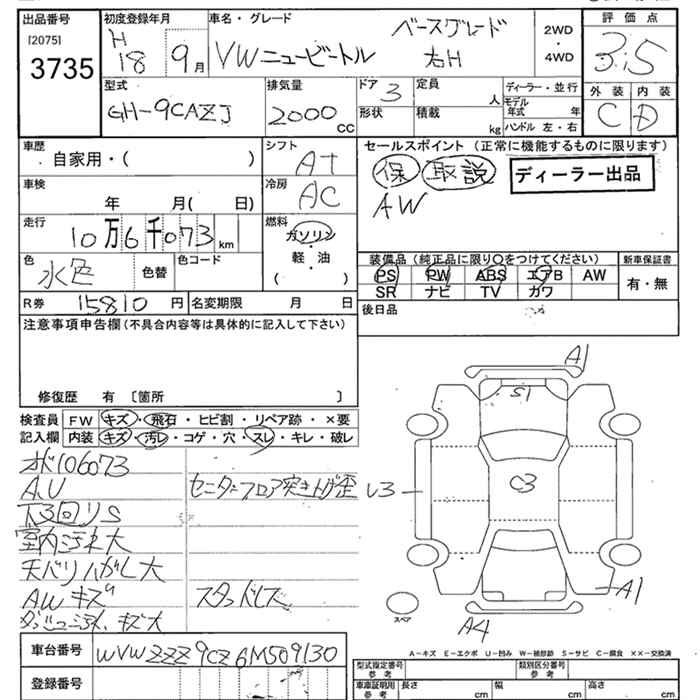 出品番号
[2075]
3735
初度登録年月
H
18 9月
車名・グレード
ベースグレード
VWニュービートル 右H
2WD
・
4WD
評価点
3.5
外装 内装
C D
型式
GH-9CAZJ
排気量
2000
cc
ドア 3
形状
定員
人
積載
kg
ディーラー・並行
モデル
年式 年
ハンドル 左・右
車歴
自家用・( )
シフト
AT
車検
年 月( 日)
冷房
AC
走行
10万6千073km
燃料
ガソリン
・
軽・油
( )
色
水色
色替
色コード
R券 15810円
名変期限 月 日
セールスポイント (正常に機能するものに限ります)
保 取説 ディーラー出品
AW
装備品(純正品に限り〇をつけてください)
新車保証書
PS PW ABS エアB AW
SR ナビ TV カワ
有・無
後日品
注意事項申告欄(不具合内容等は具体的に記入して下さい)
修復歴 有 〔箇所 〕
検査員
記入欄
FW キズ・飛石・ヒビ割・リペア跡・×要
内装 キズ・汚レ・コゲ・穴・スレ・キレ・破レ
メ106073
A,U
センターフロア突き上げ歪
下回りS
室内汚れ大
天バリハガレ大
AWキズ
スタッドレス
ダッシュ汚れ、キズ大
A1
S1
C3
U3
A1
A4
スペア
A-キズ E-エクボ U-凹み W-補修跡 S-サビ C-腐食 ××-交換済
車台番号
WVWZZZ9CZ6M509130
登録番号
型式指定番号
参考
類別区分番号
参考
車庫証明用
参考
長さ cm
幅 cm
高さ cm